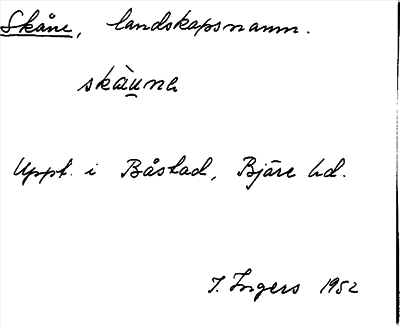 Skåne, landskapsnamn.
skàu̲na
Uppt. i Båstad, Bjäre hd.
I. Ingers 1952